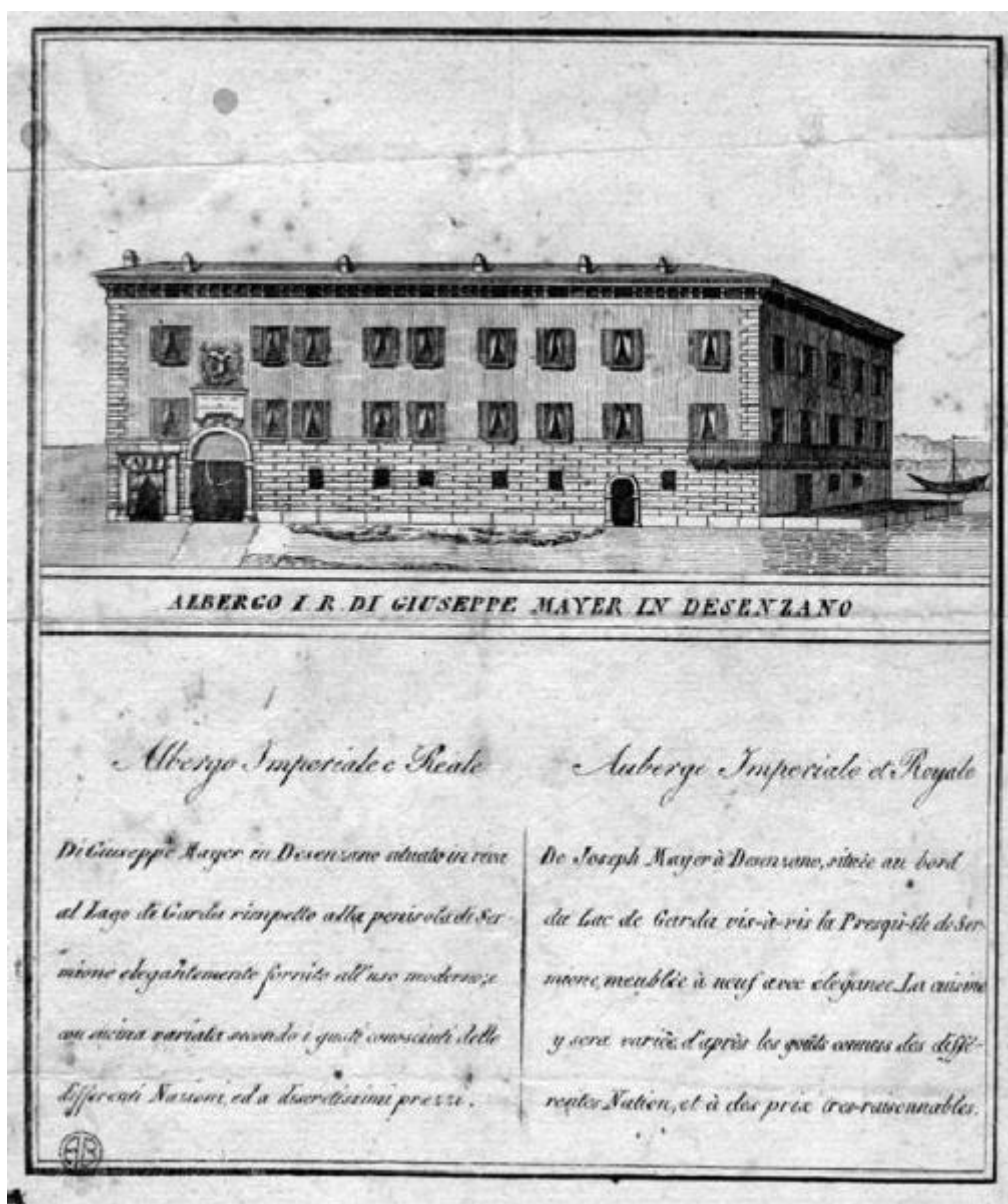 ALBERGO I. R. DI GIUSEPPE MAYER IN DESENZANO
Albergo Imperiale e Reale
Di Giuseppe Mayer in Desenzano situato in riva
al Lago di Garda rimpetto alla penisola di Ser-
mione elegantemente fornito all'uso moderno, e
con cucina variata secondo i gusti conosciuti delle
differenti Nazioni, ed a discretissimi prezzi.
Auberge Imperiale et Royale
De Joseph Mayer à Desenzano, située au bord
du Lac de Garda vis-à-vis la Presqu'-ile de Ser-
mione, meublée à neuf avec élégance. La cuisine
y sera variée d'après les goûts connus des diffé-
rentes Nation, et à des prix tres-raisonnables.